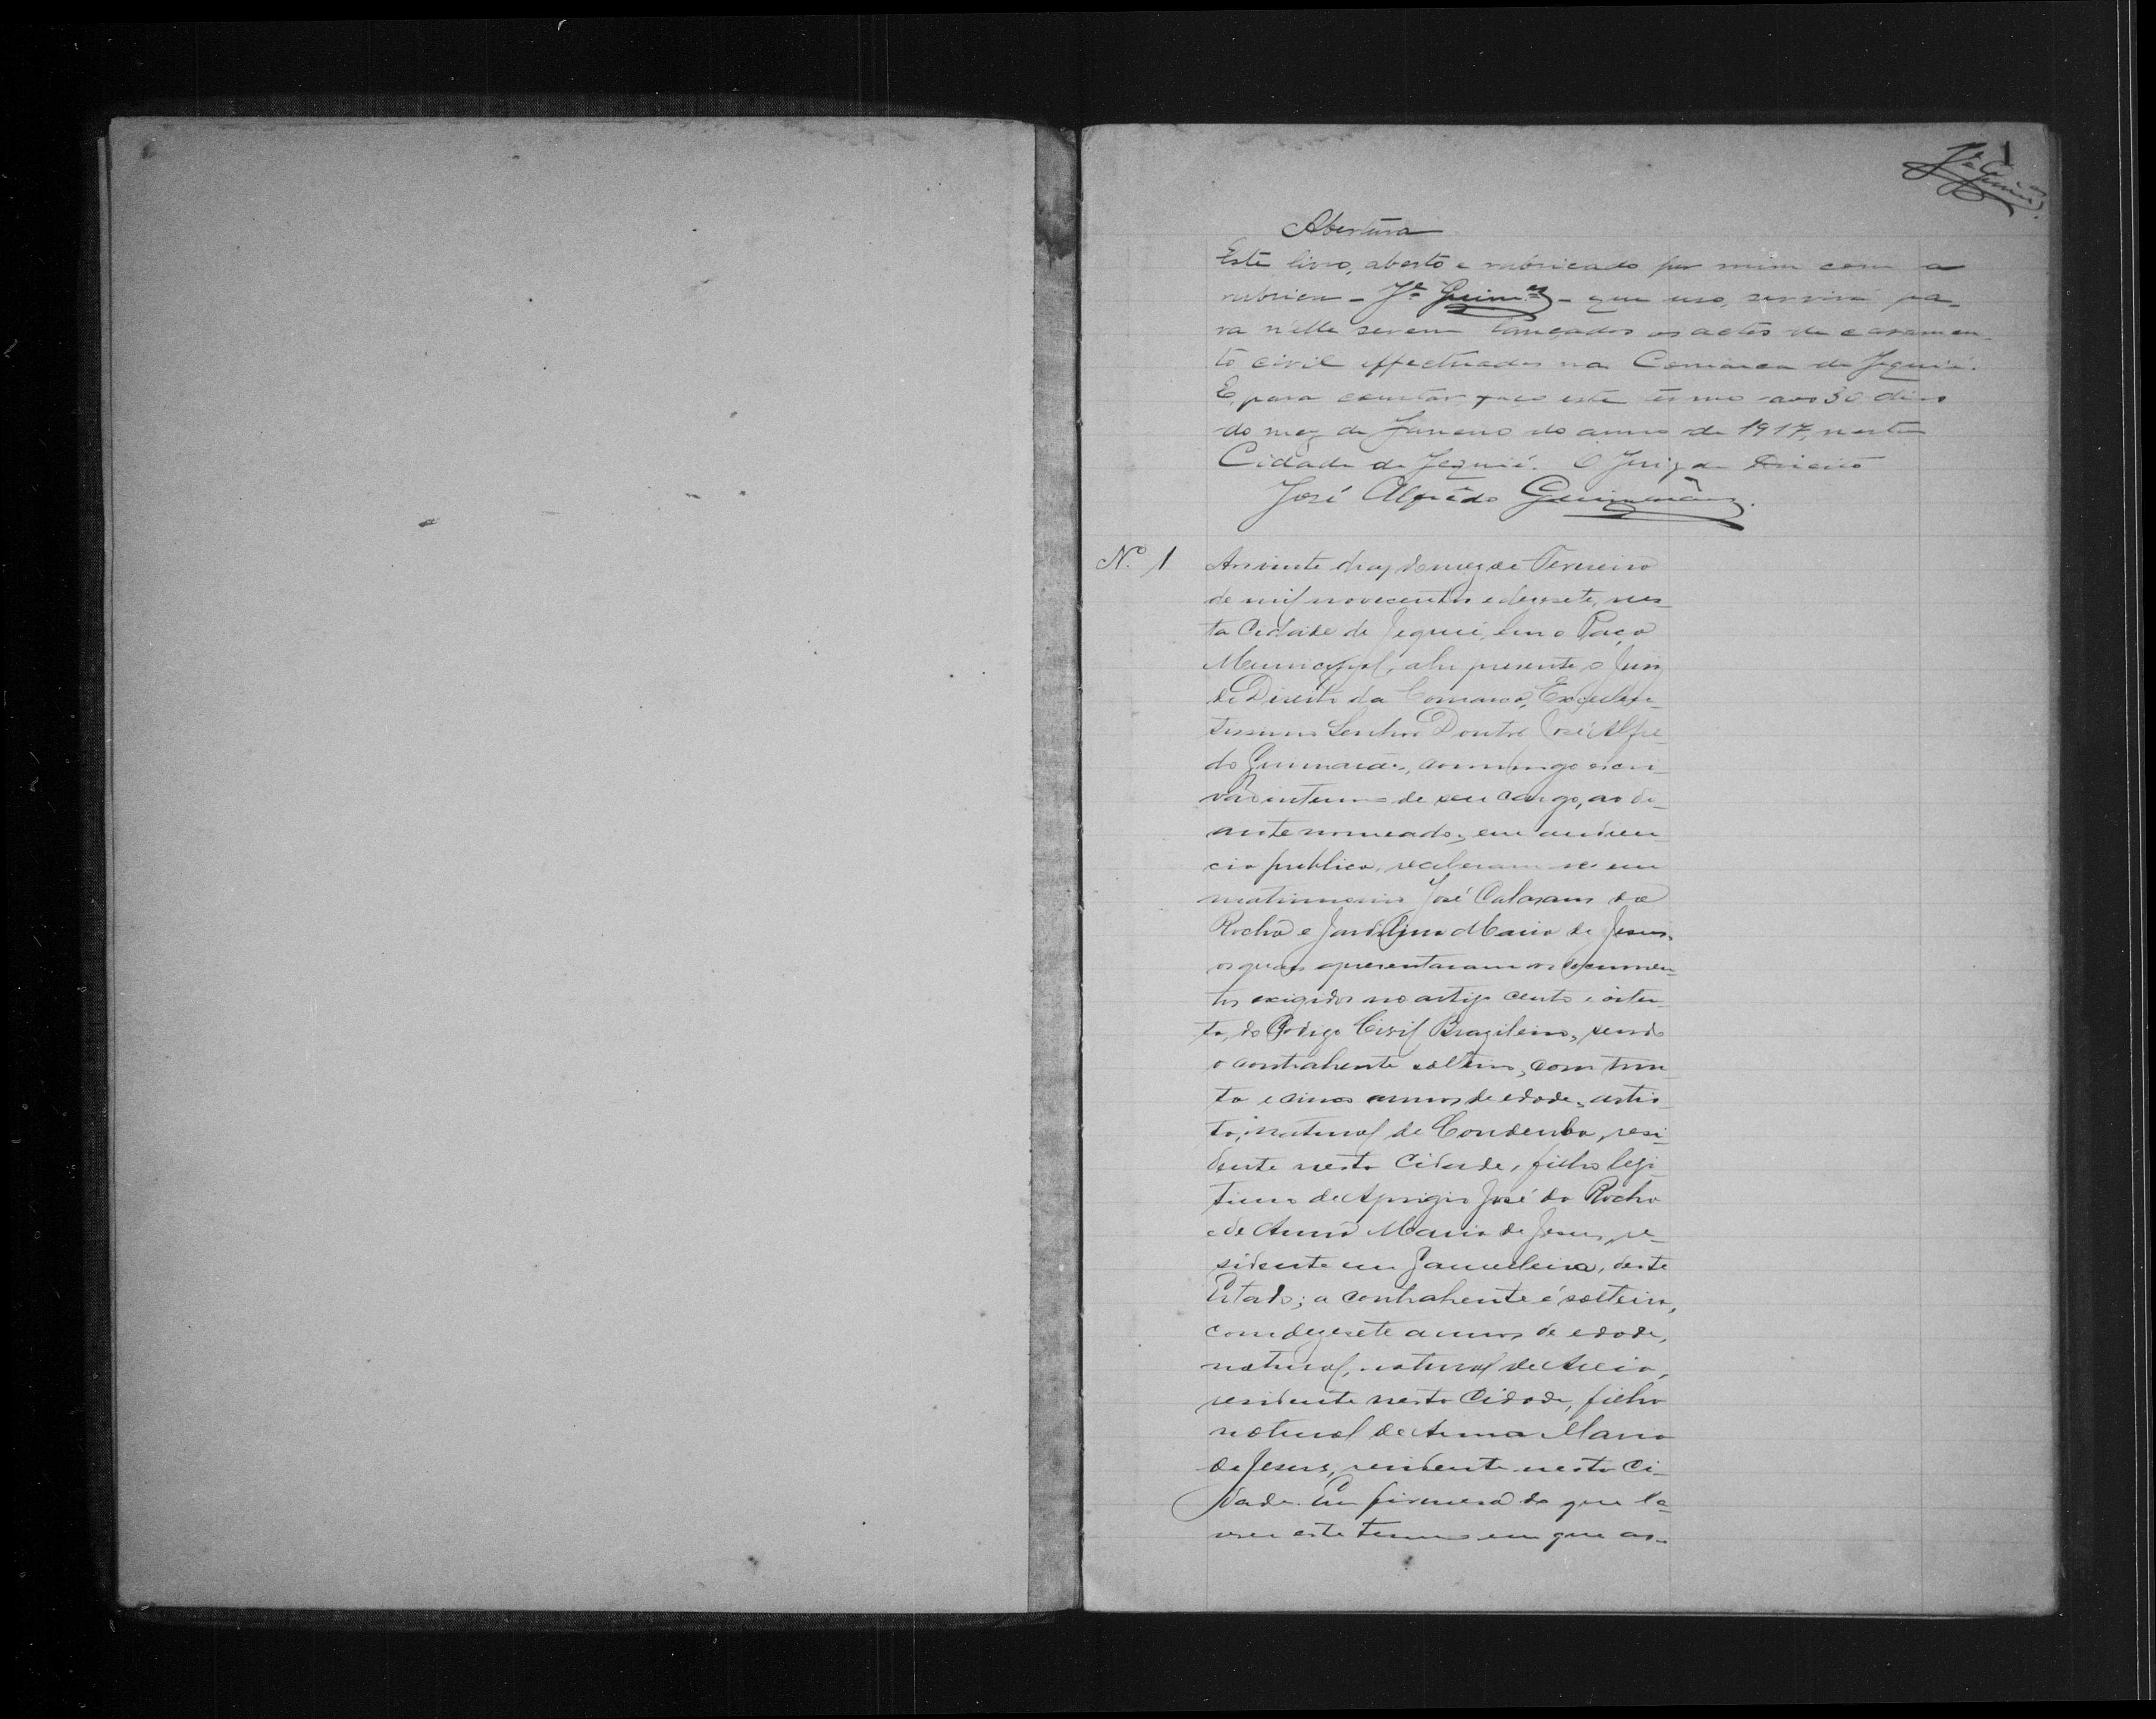 1
Jª Guim.es
Abertura
Este livro, aberto e rubricado por mim com a
rubrica - Jª Guim.es - que uso, servirá pa-
ra n'elle serem lançados os actos de casamen-
to civil effectuados na Comarca de Jequié.
E, para constar, faço este termo aos 30 dias
do mez de Janeiro do anno de 1917, nesta
Cidade de Jequié. O Juiz de Direito
José Alfrêdo Guimarães.
Nº 1
Aos vinte dias do mez de Fevereiro
de mil novecentos e dezesete, nes-
ta Cidade de Jequié, em o Paço
Municipal, ahi presente o Juiz
de Direito da Comarca, Excellen-
tissimo Senhor Doutor José Alfre-
do Guimarães, commigo escri-
vão interino de seu cargo, ao di-
ante nomeado, em audien-
cia publica, receberam-se em
matrimonio José Calasans da
Rocha e Maria de Jesus,
os quaes apresentaram os documen-
tos exigidos no artigo cento e oiten-
ta, do Codigo Civil Brazileiro, sendo
o contrahente solteiro, com trin-
ta e cinco annos de edade, artis-
ta, natural de Condeuba, resi-
dente nesta Cidade, filho legi-
timo de Aprigio José da Rocha
e de Anna Maria de Jesus, re-
sidente em Gamelleira, deste
Estado; a contrahente é solteira,
com dezesete annos de edade,
natural, natural de Areia,
residente nesta Cidade, filha
natural de Anna Maria
de Jesus, residente nesta Ci-
dade. Em firmesa do que la-
vrei este termo em que as-